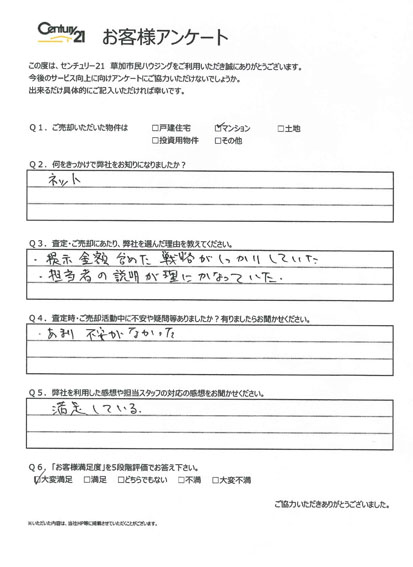 Century 21
お客様アンケート
この度は、センチュリー21 草加市民ハウジングをご利用いただき誠にありがとうございます。
今後のサービス向上に向けアンケートにご協力いただけないでしょうか。
出来るだけ具体的にご記入いただければ幸いです。
Q1．ご売却いただいた物件は □戸建住宅 ☑マンション □土地
□投資用物件 □その他
Q2．何をきっかけで弊社をお知りになりましたか？
ネット
Q3．査定・ご売却にあたり、弊社を選んだ理由を教えてください。
・提示金額含めた戦略がしっかりしていた
・担当者の説明が理にかなっていた.
Q4．査定時・ご売却活動中に不安や疑問等ありましたか？有りましたらお聞かせください。
・あまり不安がなかった
Q5．弊社を利用した感想や担当スタッフの対応の感想をお聞かせください。
満足している.
Q6．「お客様満足度」を5段階評価でお答え下さい。
☑大変満足 □満足 □どちらでもない □不満 □大変不満
ご協力いただきありがとうございました。
※いただいた内容は、当社HP等に掲載させていただくことがございます。